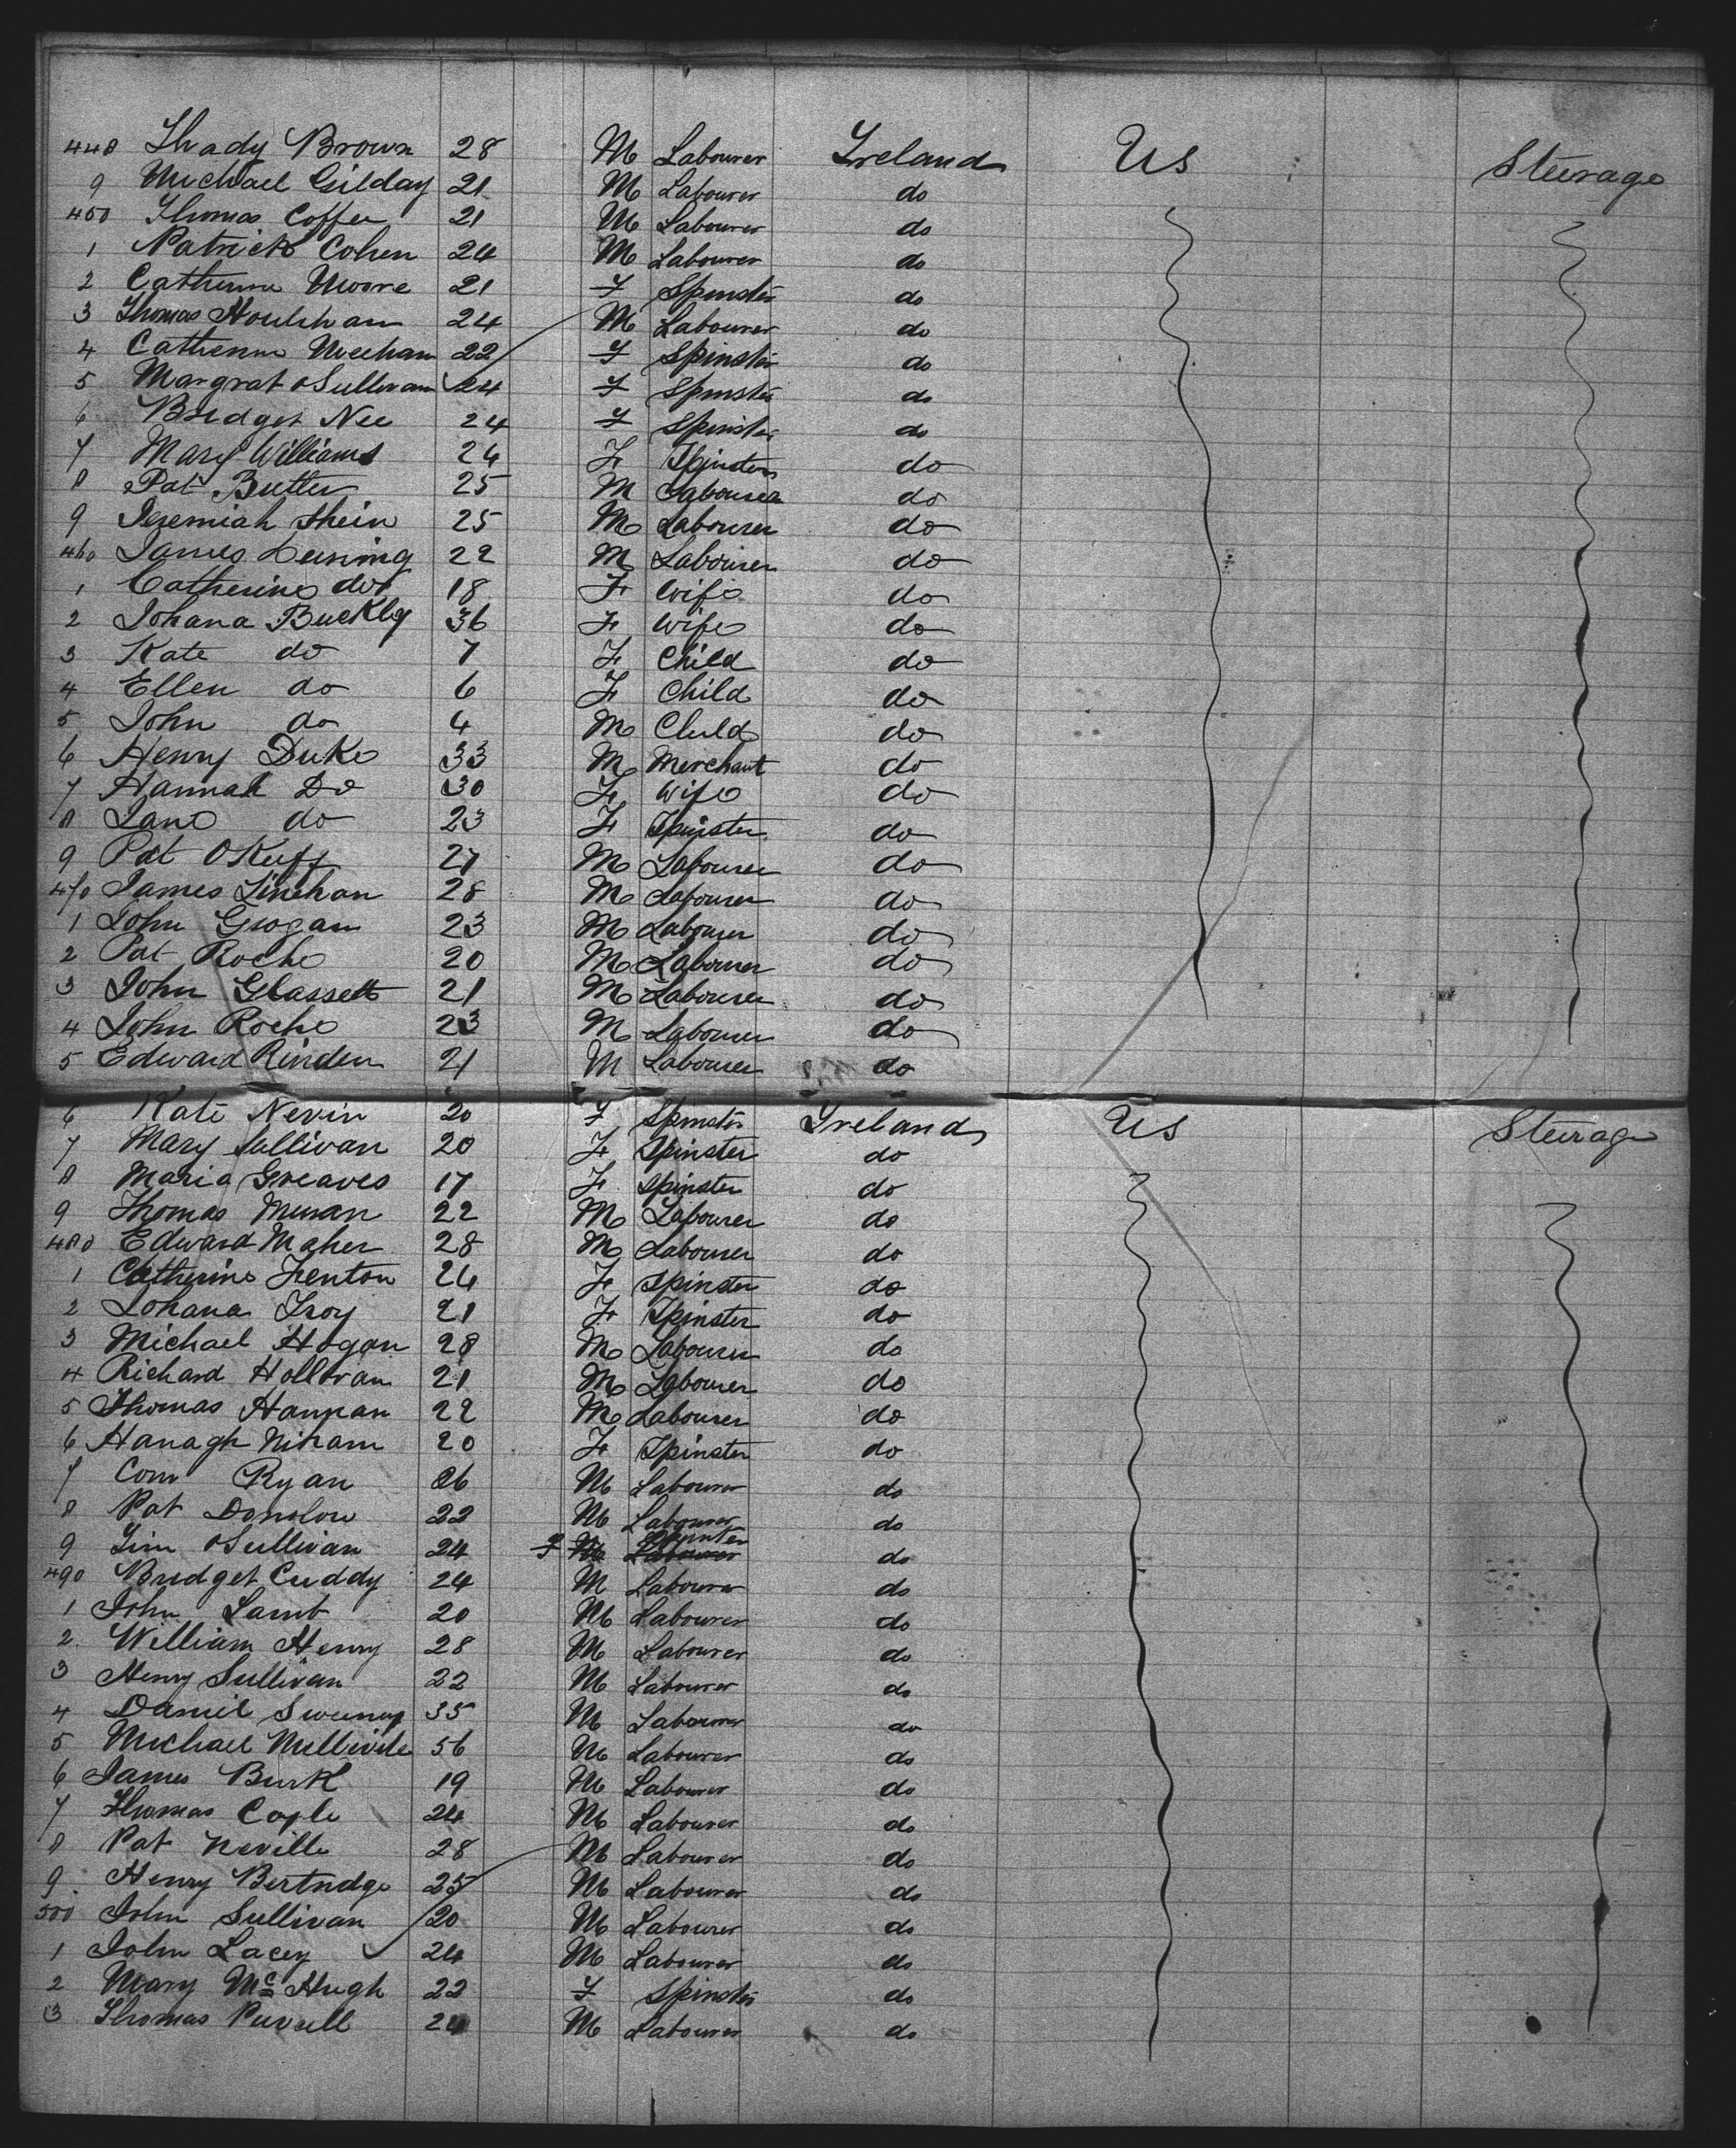 448 Thady Brown 28 M Labourer Ireland US Steerage
9 Michael Gilday 21 M Labourer do
450 Thomas Coffee 21 M Labourer do
1 Patrick Cohen 24 M Labourer do
2 Catherine Moore 21 F Spinster do
3 Thomas Houlihan 24 M Labourer do
4 Catherine Meehan 22 F Spinster do
5 Margrat OSullivan 24 F Spinster do
6 Bridget Nee 24 F Spinster do
7 Mary Williams 24 F Spinster do
8 Pat Butler 25 M Labourer do
9 Jeremiah Shein 25 M Labourer do
460 James 22 M Labourer do
1 Catherine do 18 F Wife do
2 Johana Buckley 36 F Wife do
3 Kate do 7 F Child do
4 Ellen do 6 F Child do
5 John do 4 M Child do
6 Henry Duke 33 M Merchant do
7 Hannah Do 30 F Wife do
8 Jane do 23 F Spinster do
9 Pat OKeeff 27 M Labourer do
470 James Linehan 28 M Labourer do
1 John Grogan 23 M Labourer do
2 Pat Roche 20 M Labourer do
3 John Glassett 21 M Labourer do
4 John Roche 23 M Labourer do
5 Edward Rinden 21 M Labourer do
6 Kate Nevin 20 F Spinster Ireland US Steerage
7 Mary Sullivan 20 F Spinster do
8 Maria Greaves 17 F Spinster do
9 Thomas 22 M Labourer do
480 Edward Maher 28 M Labourer do
1 Catherine Fenton 24 F Spinster do
2 Johana Troy 21 F Spinster do
3 Michael Hogan 28 M Labourer do
4 Richard Holloran 21 M Labourer do
5 Thomas Hannan 22 M Labourer do
6 Hanagh 20 F Spinster do
7 Con Ryan 26 M Labourer do
8 Pat Donolow 22 M Labourer do
9 Jim OSullivan 24 F M Spinster Labourer do
490 Bridget Cuddy 24 M Labourer do
1 John Lamb 20 M Labourer do
2 William Henry 28 M Labourer do
3 Henry Sullivan 22 M Labourer do
4 Daniel Sweeny 35 M Labourer do
5 Michael 56 M Labourer do
6 James Burk 19 M Labourer do
7 Thomas Coyle 24 M Labourer do
8 Pat Neville 28 M Labourer do
9 Henry Bertridge 25 M Labourer do
500 John Sullivan 20 M Labourer do
1 John Lacey 24 M Labourer do
2 Mary Mc Hugh 22 F Spinster do
3 Thomas Purcell 24 M Labourer do